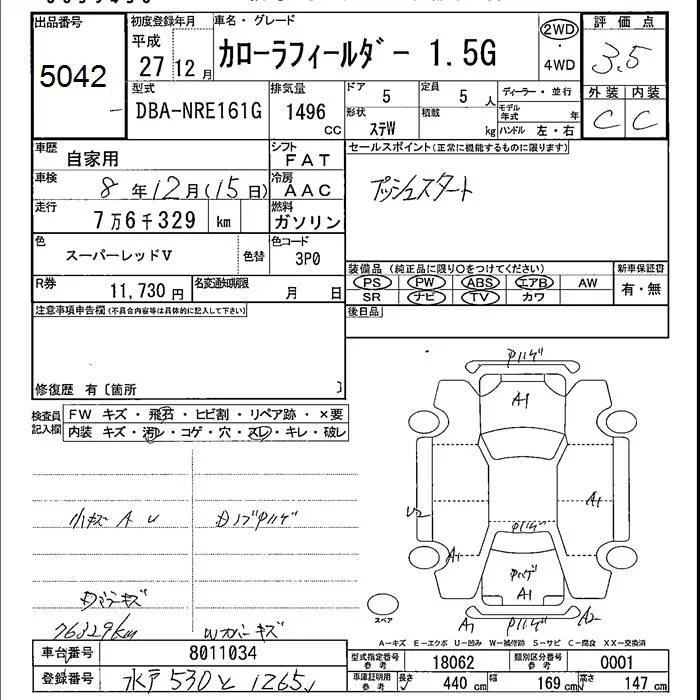 出品番号 初度登録年月 車名・グレード 評価点
5042 平成 27 12月 カローラフィールダー 1.5G 2WD・4WD 3.5
型式 排気量 ドア 5 定員 5人 ディーラー・並行 外装 内装
DBA-NRE161G 1496cc 形状 ステW 積載 kg モデル年式 年 ハンドル 左・右 C C
車歴 自家用 シフト FAT セールスポイント(正常に機能するものに限ります)
車検 8年12月(15日) 冷房 AAC プッシュスタート
走行 7万6千329 km 燃料 ガソリン
色 スーパーレッドV 色替 色コード 3P0
装備品(純正品に限り○をつけてください) 新車保証書
PS PW ABS エアB AW 有・無
SR ナビ TV カワ
R券 11,730円 名変通知期限 月 日
後日品
注意事項申告欄(不具合内容等は具体的に記入して下さい)
修復歴 有〔箇所 〕
検査員記入欄 FW キズ・飛石・ヒビ割・リペア跡・×要
内装 キズ・汚レ・コゲ・穴・スレ・キレ・破レ
小キズ A U
76329km Wカバーキズ
A1
U2
A1
A1
A1
A1 A2
スペア
A-キズ E-エクボ U-凹み W-補修跡 S-サビ C-腐食 XX-交換済
車台番号 8011034 型式指定番号 参考 18062 類別区分番号 参考 0001
登録番号 水戸 530 と 1265 車庫証明用 参考 長さ 440 cm 幅 169 cm 高さ 147 cm